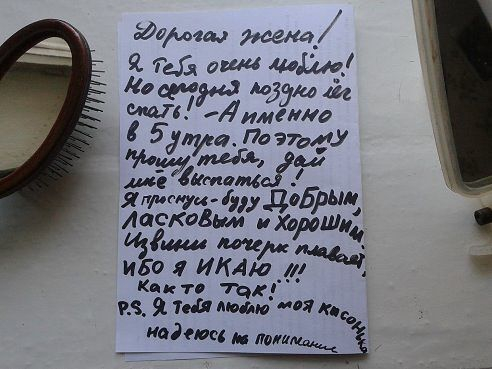 Дорогая жена!
Я тебя очень люблю!
Но сегодня поздно лёг
спать! - А именно
в 5 утра. Поэтому
прошу тебя, дай
мне выспаться!
Я проснусь - буду ДОБРЫМ,
ЛАСКОВЫМ и ХОРОШИМ.
Извини почерк плавает,
ибо я ИКАЮ!!!
Как то так!
P.S. Я тебя люблю моя кисонька
надеюсь на понимание